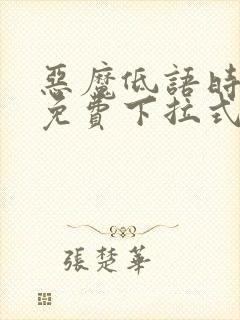 惡魔低語時
免費下拉式
張楚華